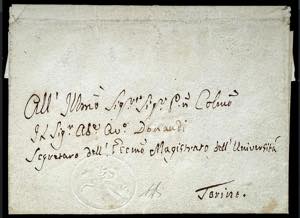 All' Illmo Sigre Sigr Pn Colmo
Il Sigr Abe Avo Donaudi
Segretaro dell' Eccmo Magistrato dell' Università
Torino.